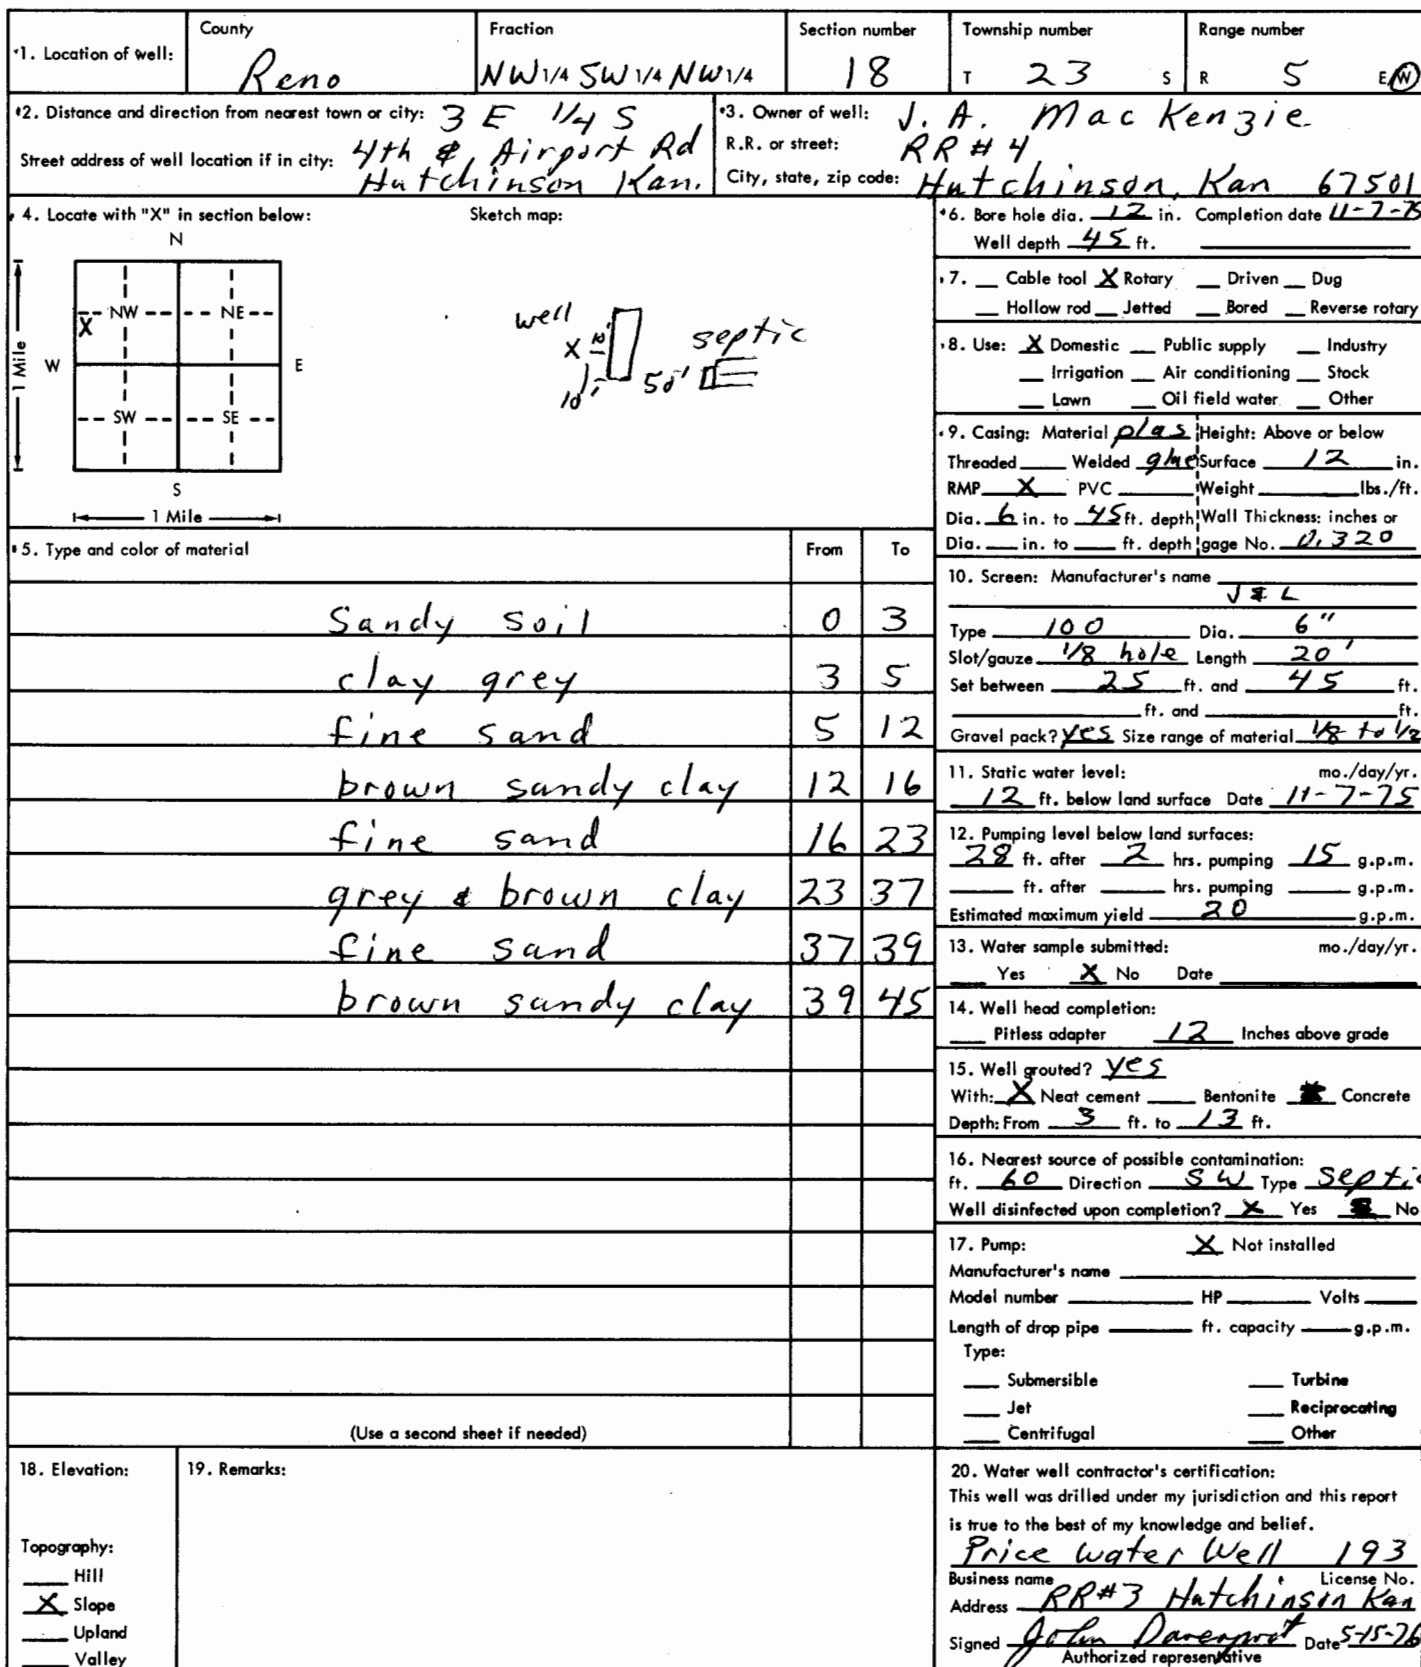 *1. Location of well: County Reno Fraction NW 1/4 SW 1/4 NW 1/4 Section number 18 Township number T 23 S Range number R 5 E/W
*2. Distance and direction from nearest town or city: 3 E 1/4 S
Street address of well location if in city: 4th & Airport Rd
Hutchinson Kan.
*3. Owner of well: J. A. MacKenzie
R.R. or street: RR #4
City, state, zip code: Hutchinson, Kan 67501
4. Locate with "X" in section below: Sketch map:
N
NW NE
X
W E
SW SE
S
1 Mile
1 Mile
well
X 10'
10'
50'
septic
*5. Type and color of material From To
Sandy Soil 0 3
clay grey 3 5
fine sand 5 12
brown sandy clay 12 16
fine sand 16 23
grey & brown clay 23 37
fine sand 37 39
brown sandy clay 39 45
(Use a second sheet if needed)
*6. Bore hole dia. 12 in. Completion date 11-7-75
Well depth 45 ft.
*7. Cable tool X Rotary Driven Dug
Hollow rod Jetted Bored Reverse rotary
*8. Use: X Domestic Public supply Industry
Irrigation Air conditioning Stock
Lawn Oil field water Other
*9. Casing: Material plas Height: Above or below
Threaded Welded glue Surface 12 in.
RMP X PVC Weight lbs./ft.
Dia. 6 in. to 45 ft. depth Wall Thickness: inches or
Dia. in. to ft. depth gage No. 0.320
10. Screen: Manufacturer's name
J & L
Type 100 Dia. 6"
Slot/gauze 1/8 hole Length 20'
Set between 25 ft. and 45 ft.
ft. and ft.
Gravel pack? yes Size range of material 1/8 to 1/2
11. Static water level: mo./day/yr.
12 ft. below land surface Date 11-7-75
12. Pumping level below land surfaces:
28 ft. after 2 hrs. pumping 15 g.p.m.
ft. after hrs. pumping g.p.m.
Estimated maximum yield 20 g.p.m.
13. Water sample submitted: mo./day/yr.
Yes X No Date
14. Well head completion:
Pitless adapter 12 Inches above grade
15. Well grouted? yes
With: X Neat cement Bentonite Concrete
Depth: From 3 ft. to 13 ft.
16. Nearest source of possible contamination:
ft. 60 Direction SW Type Septic
Well disinfected upon completion? X Yes No
17. Pump: X Not installed
Manufacturer's name
Model number HP Volts
Length of drop pipe ft. capacity g.p.m.
Type:
Submersible Turbine
Jet Reciprocating
Centrifugal Other
18. Elevation:
Topography:
Hill
X Slope
Upland
Valley
19. Remarks:
20. Water well contractor's certification:
This well was drilled under my jurisdiction and this report
is true to the best of my knowledge and belief.
Price Water Well 193
Business name License No.
Address RR#3 Hutchinson Kan
Signed John Davenport Date 5-15-76
Authorized representative